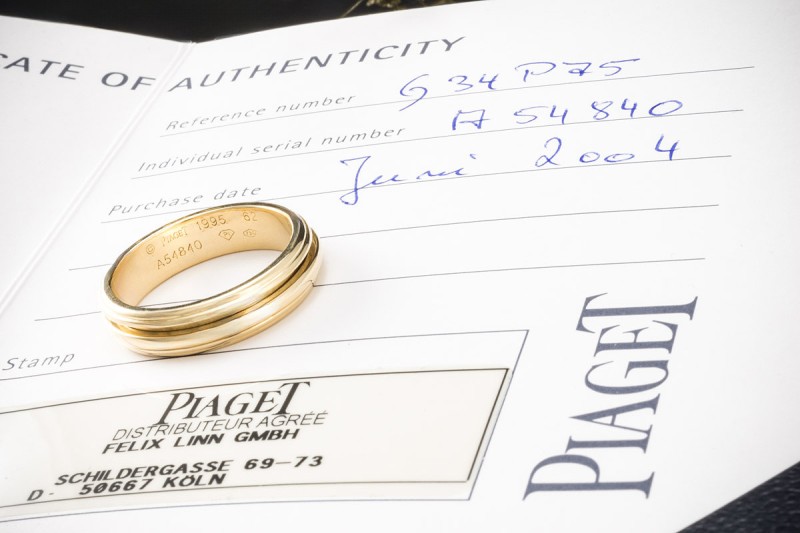 CATE OF AUTHENTICITY
Reference number G34P75
Individual serial number A 54840
Purchase date Juni 2004
© PIAGET 1995 62
A54840
Stamp
PIAGET
DISTRIBUTEUR AGRÉÉ
FELIX LINN GMBH
SCHILDERGASSE 69-73
D- 50667 KÖLN
PIAGET